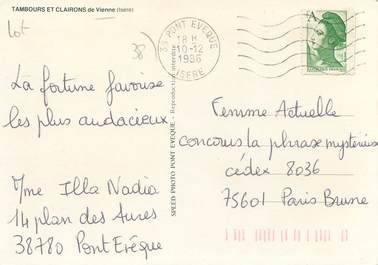 TAMBOURS ET CLAIRONS de Vienne (Isère)
Lot
38
La fortune favorise
les plus audacieux
Mme Illa Nadia
14 plan des Aures
38780 Pont Evêque
SPEED PHOTO PONT EVEQUE - Reproduction interdite
38 PONT EVEQUE
18 H
10-12
1986
ISERE
A
Femme Actuelle
concours la phrase mystérieuse
cédex 8036
75601 Paris Brune